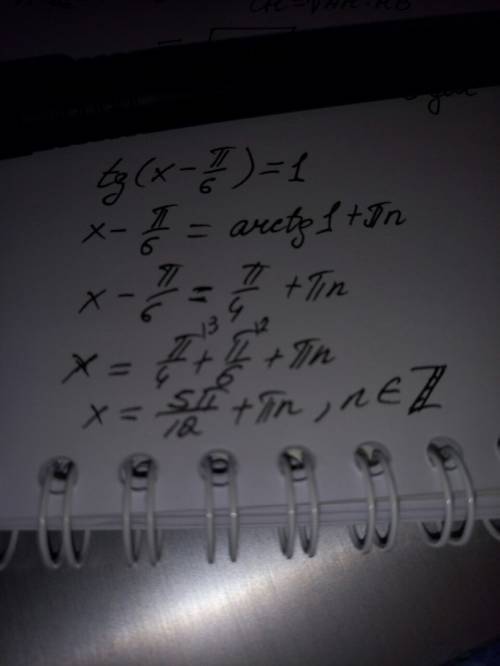 tg(x - π/6) = 1
x - π/6 = arctg 1 + πn
x - π/6 = π/4 + πn
x = π/4 \3 + π/6 \2 + πn
x = 5π/12 + πn, n ∈ ℤ